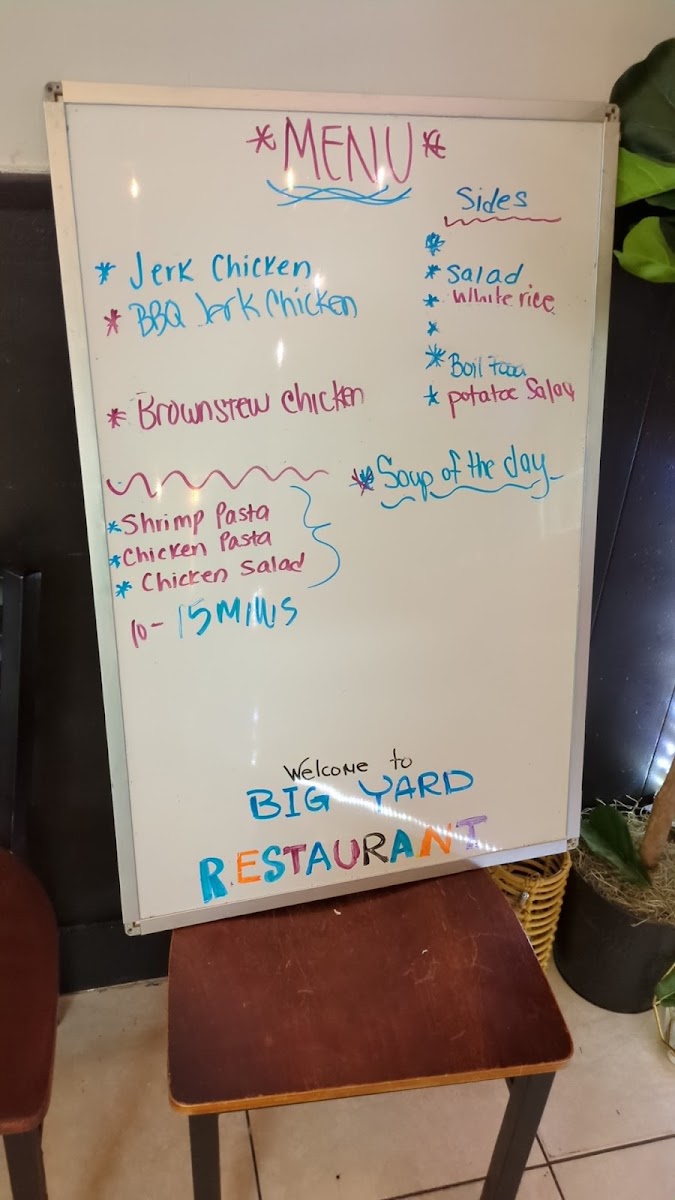 *MENU*
* Jerk Chicken
* BBQ Jerk Chicken
* Brownstew Chicken
Sides
*
* Salad
* White rice
*
* Boil food
* potatoe Salad
* Soup of the day
* Shrimp Pasta
* Chicken Pasta
* Chicken Salad
10- 15 MINS
Welcome to
BIG YARD
RESTAURANT